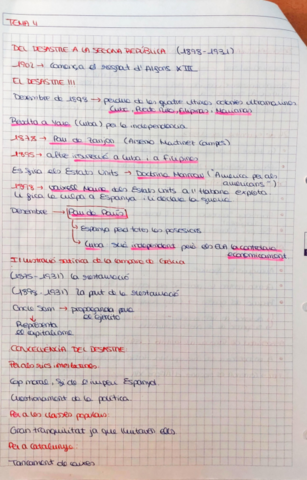 TEMA 4
DEL DESASTRE A LA SEGONA REPÚBLICA (1898-1931)
1902 → comença el regnat d'Alfons XIII
EL DESASTRE !!!
Desembre de 1898 → pèrdua de les quatre últimes colonies ultramarines
Cuba, Puerto Rico, Filipines i Marianes
(Cuba) per la independència
1878 → Pau de Zanjón (Arsenio Martínez Campos)
1895 → altre a Cuba i a Filipines
Estats Units → Doctrina Monroe ("Amèrica per als
americans")
1898 → Maine dels Estats Units a l'Havana explota.
li la culpa a Espanya i li declara la guerra
Desembre → Pau de París
→ Espanya perd totes les possessions
→ Cuba independent però els EUA la controlen
econòmicament
Il·lustració satírica de la
(1875-1931) la Restauració
(1898-1931) la part de la Restauració
Oncle Sam → propaganda per
exèrcit
Representa
el capitalisme
CONSEQÜÈNCIA DEL DESASTRE
Per als
Cop moral, Espanyol
Qüestionament de la política
Per a les classes populars
Gran tranquilitat ja que
Per a Catalunya
Tancament de